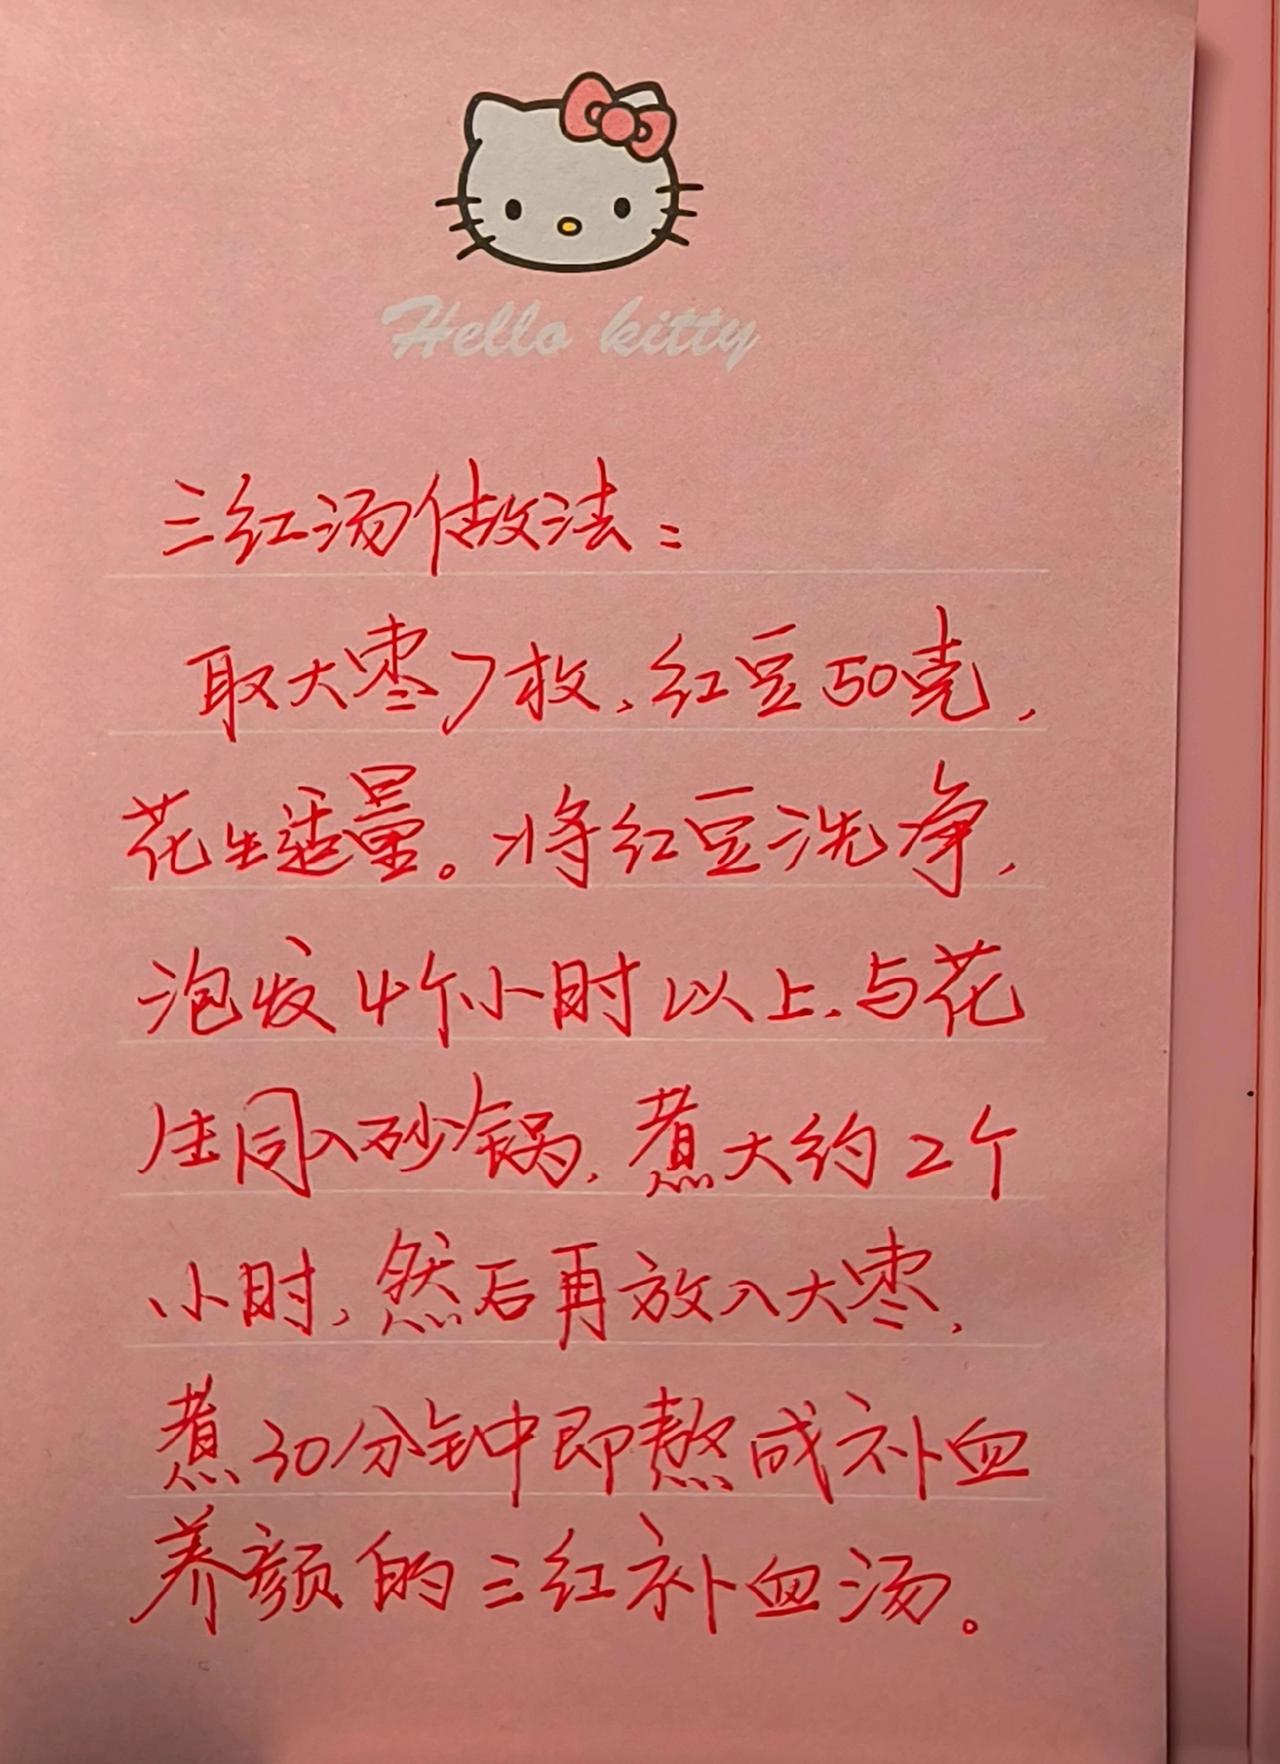 Hello kitty
三红汤做法：
取大枣7枚、红豆50克，
花生适量。将红豆洗净，
泡发4个小时以上、与花
生同入砂锅，煮大约2个
小时，然后再放入大枣，
煮30分钟即熬成补血
养颜的三红补血汤。